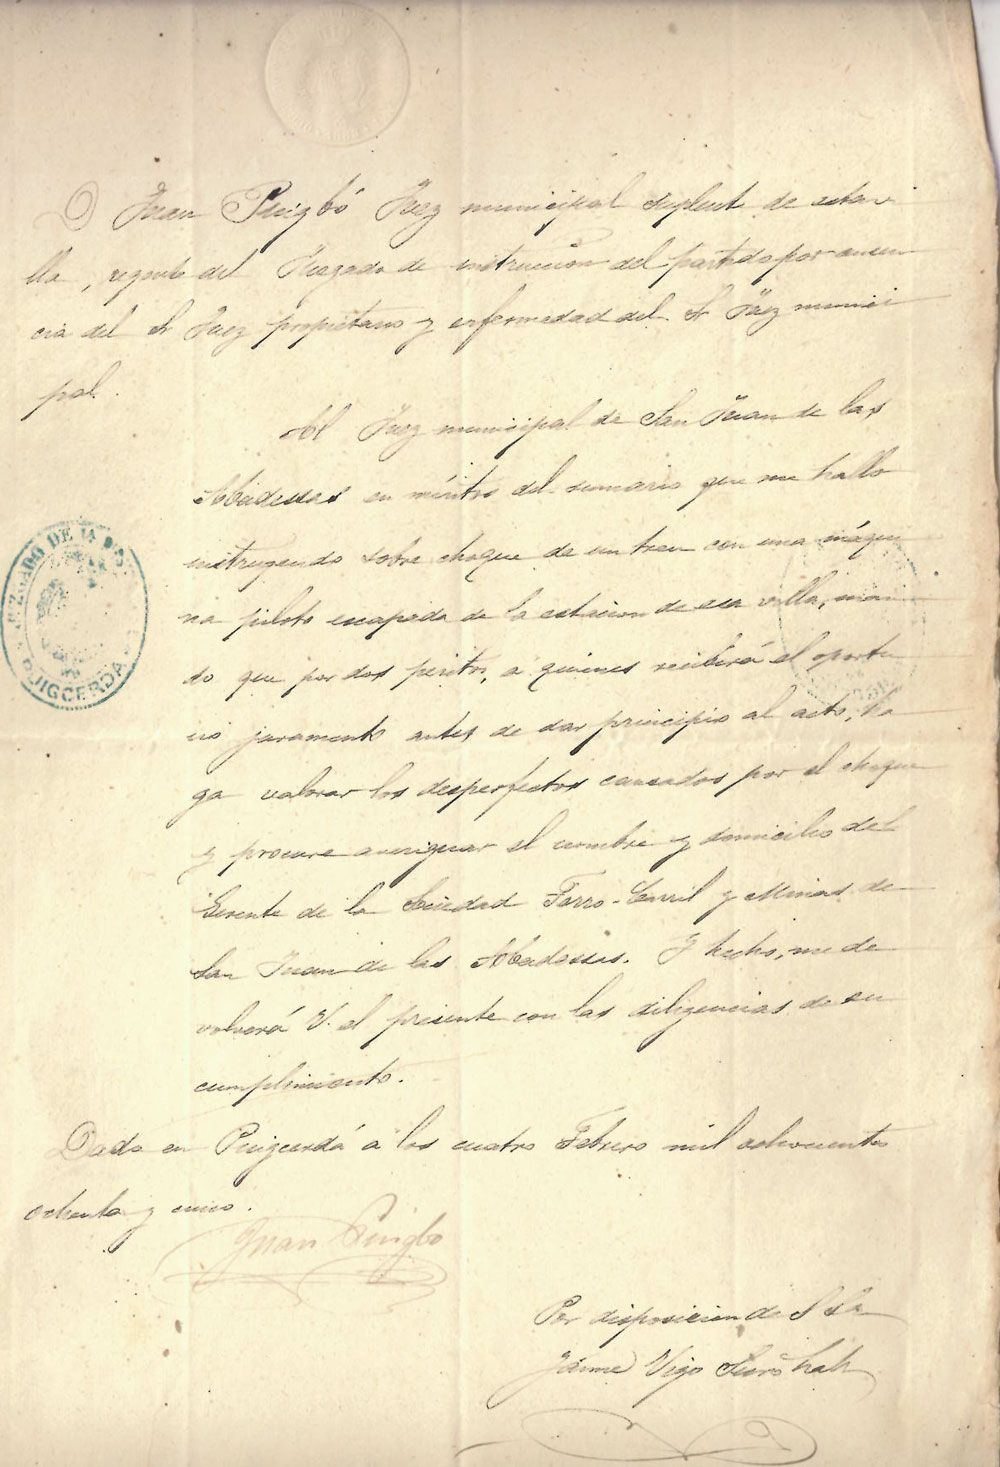 D Juan Puigbó Juez municipal suplente de esta vi
lla, regente del Juzgado de instruccion del partido por ausen
cia del Sr Juez propietario y enfermedad del Sr Juez munici
pal.
Al Juez municipal de San Juan de las
Abadesas en méritos del sumario que me hallo
instruyendo sobre choque de un tren con una máqui
na piloto escapada de la estacion de esa villa, man
do que por dos peritos, a quienes recibirá el oportu
no juramento antes de dar principio al acto, ha
ga valorar los desperfectos causados por el choque
y procure averiguar el nombre y domicilio del
Gerente de la Sociedad Ferro-Carril y Minas de
San Juan de las Abadesas. Y hecho, me de
volverá V. el presente con las diligencias de su
cumplimiento.
Dado en Puigcerdá á los cuatro Febrero mil ochocientos
ochenta y cinco.
Juan Puigbo
Por disposicion de S Sa
Jaime Vigo
JUZGADO DE
PUIGCERDA